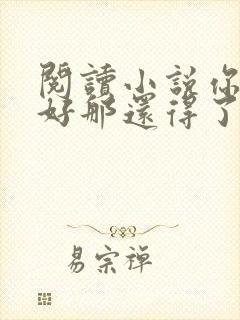 閱讀小說你
好那還得了
易宗禪